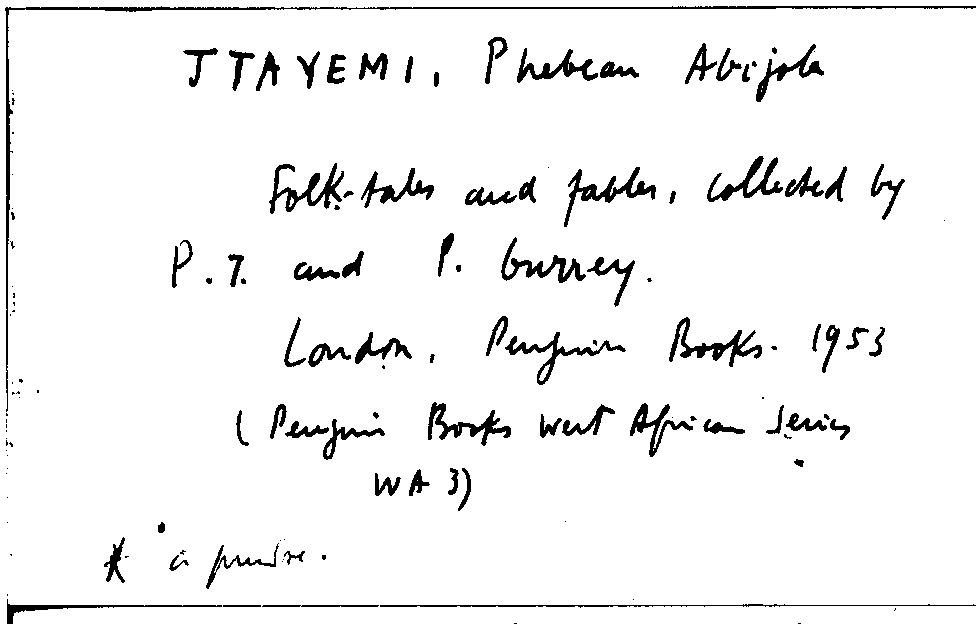 ITAYEMI, Phebean Abijola
Folk-tales and fables, collected by
P.I. and P. Gurrey.
London, Penguin Books. 1953
(Penguin Books West African Series
WA 3)
* à prendre.